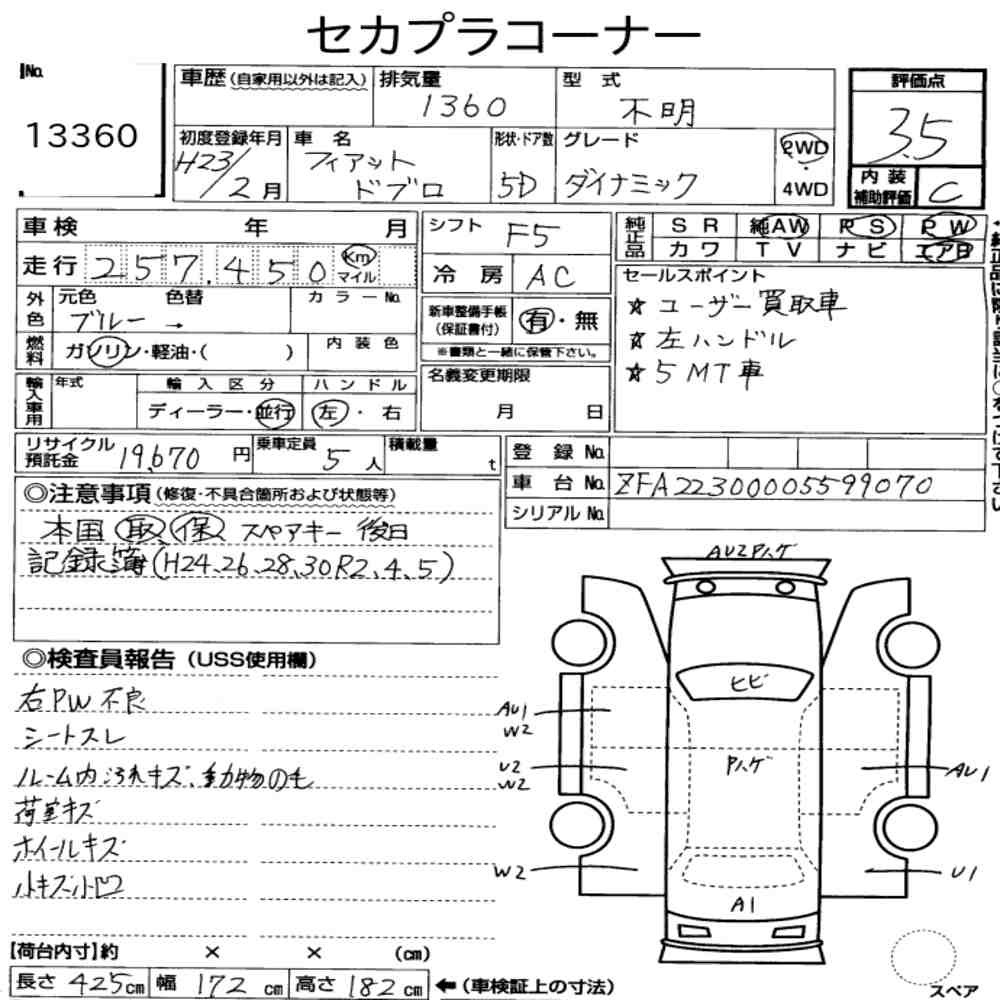 セカプラコーナー
No. 13360
車歴(自家用以外は記入) 排気量 1360 型式 不明
初度登録年月 H23/2月 車名 フィアット ドブロ 形状・ドア数 5D グレード ダイナミック 2WD 4WD
評価点 3.5
内装補助評価 C
車検 年 月
走行 257,450 Km マイル
外色 元色 ブルー → 色替 カラーNo.
燃料 ガソリン・軽油・( ) 内装色
輸入車用 年式 輸入区分 ディーラー・並行 ハンドル 左・右
リサイクル預託金 19,670円 乗車定員 5人 積載量 t
シフト F5
冷房 AC
新車整備手帳(保証書付) 有・無
※書類と一緒に保管下さい。
名義変更期限 月 日
純正品 SR 純AW PS PW
カワ TV ナビ エアB
セールスポイント
☆ユーザー買取車
☆左ハンドル
☆5MT車
登録No.
車台No. ZFA22300005599070
シリアルNo.
◎注意事項(修復・不具合箇所および状態等)
本国 取 保 スペアキー 後日
記録簿(H24.26.28.30R2.4.5)
◎検査員報告(USS使用欄)
右PW不良
シートスレ
ルーム内汚れキズ、動物の毛
荷室キズ
ホイールキズ
小キズ小凹
【荷台内寸】約 × × (cm)
長さ 425cm 幅 172cm 高さ 182cm ←(車検証上の寸法)
AU2Pハゲ
ヒビ
AU1
W2
U2
W2
Pハゲ
AU1
W2
U1
A1
スペア